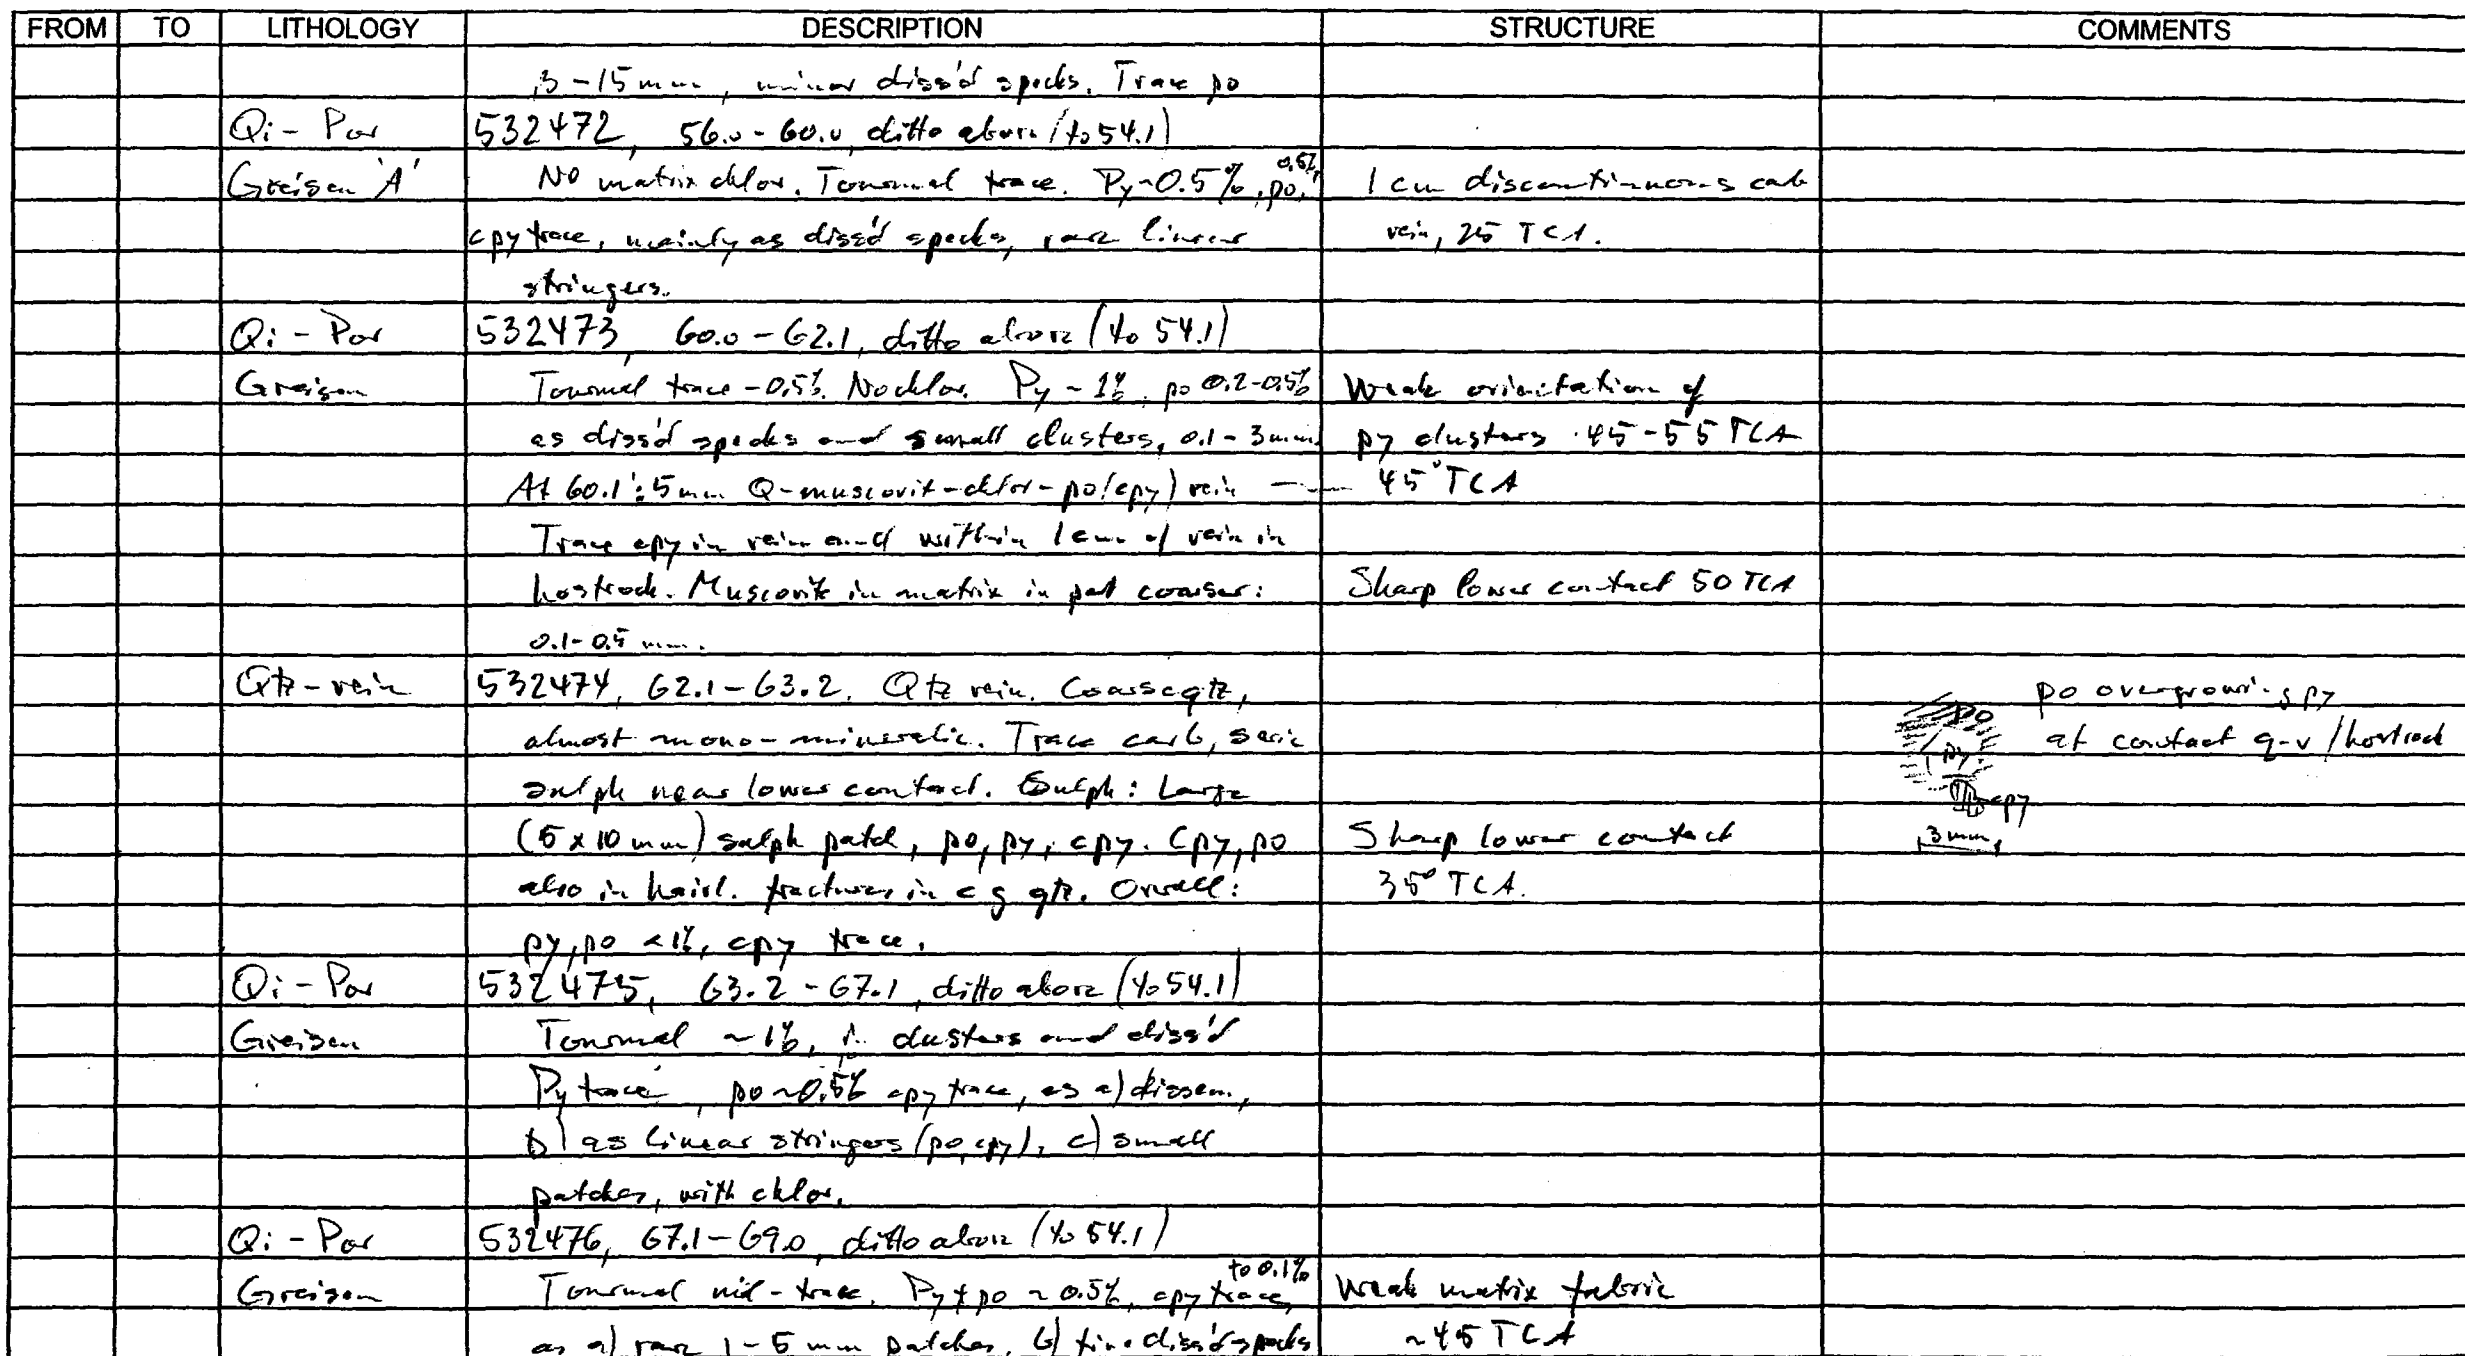 FROM TO LITHOLOGY DESCRIPTION STRUCTURE COMMENTS
3-15 mm, minor diss'd specks. Trace po
Qi-Por 532472, 56.0-60.0, ditto above (to 54.1)
Greisen 'A' No matrix chlor. Tourmal trace. Py~0.5%, po 0.5%, 1 cm discontinuous carb
cpy trace, mainly as diss'd specks, rare linear vein, 25 TCA.
stringers.
Qi-Por 532473, 60.0-62.1, ditto above (to 54.1)
Greisen Tourmal trace-0.5%. No chlor. Py ~1%, po 0.2-0.5% Weak orientation of
as diss'd specks and small clusters, 0.1-3mm. py clusters 45-55 TCA
At 60.1: 5mm Q-muscovit-chlor-po(cpy) vein — 45° TCA
Trace cpy in vein and within 1cm of vein in
hostrock. Muscovit in matrix in part coarser: Sharp lower contact 50 TCA
0.1-0.5 mm.
Qtz-vein 532474, 62.1-63.2, Qtz vein. Coarse qtz, po overgrowing py
almost mono-mineralic. Trace carb, seric po at contact q-v/hostrock
sulph near lower contact. Sulph: Large py cpy
(5x10 mm) sulph patch, po, py, cpy. Cpy, po Sharp lower contact 3mm
also in hairl. fractures in c g qtz. Overall: 35° TCA.
py, po <1%, cpy trace.
Qi-Por 532475, 63.2-67.1, ditto above (to 54.1)
Greisen Tourmal ~1%, in clusters and diss'd
Py trace, po ~0.5% cpy trace, as a) dissem.,
b) as linear stringers (po, cpy), c) small
patches, with chlor.
Qi-Por 532476, 67.1-69.0, ditto above (to 54.1)
Greisen Tourmal nil-trace. Py+po ~0.5%, cpy trace to 0.1%, Weak matrix fabric
as a) rare 1-5 mm patches, b) fine diss'd specks ~45 TCA